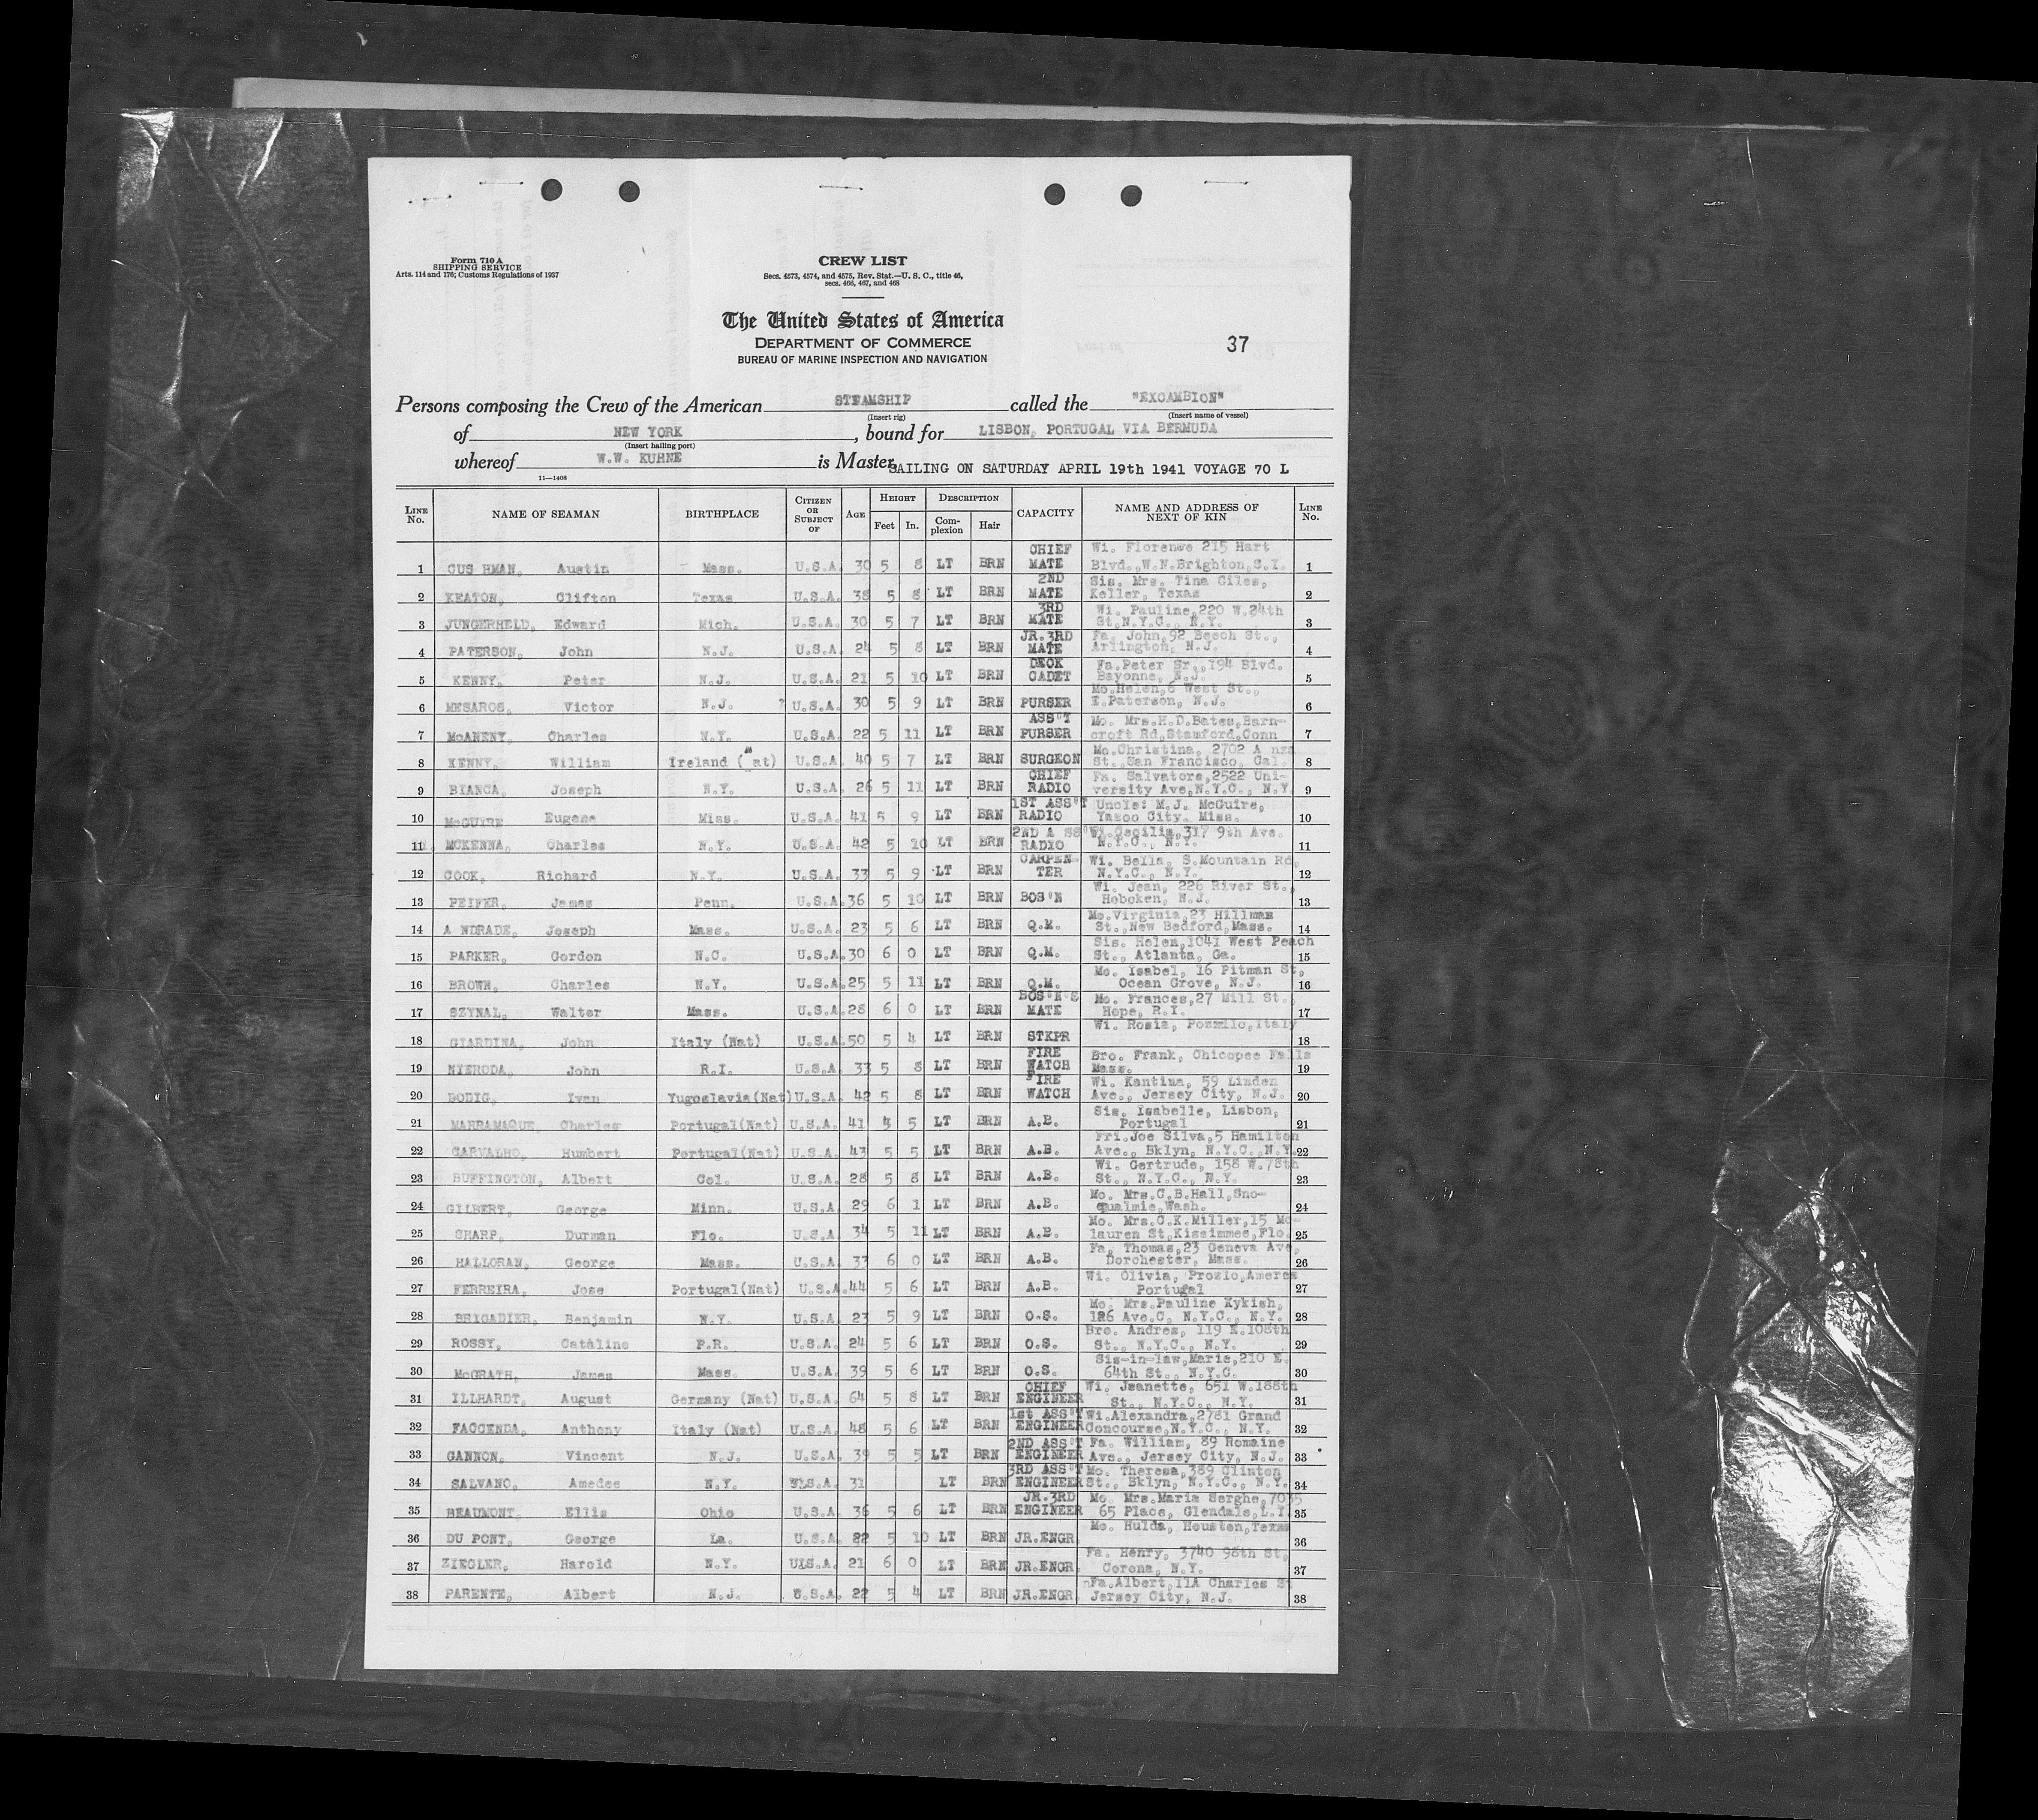 Form 710 A
SHIPPING SERVICE
Arts. 114 and 176; Customs Regulations of 1937
CREW LIST
Secs. 4573, 4574, and 4575, Rev. Stat.—U. S. C., title 46,
secs. 466, 467, and 468
The United States of America
DEPARTMENT OF COMMERCE
BUREAU OF MARINE INSPECTION AND NAVIGATION
37
Persons composing the Crew of the American STEAMSHIP called the "EXCAMBION"
(Insert rig) (Insert name of vessel)
of NEW YORK, bound for LISBON, PORTUGAL VIA BERMUDA
(Insert hailing port)
whereof W.W. KUHNE is Master SAILING ON SATURDAY APRIL 19th 1941 VOYAGE 70 L
11—1408
LINE No. NAME OF SEAMAN BIRTHPLACE CITIZEN OR SUBJECT OF AGE HEIGHT Feet In. DESCRIPTION Complexion Hair CAPACITY NAME AND ADDRESS OF NEXT OF KIN LINE No.
1 CUS HMAN, Austin Mass. U.S.A. 30 5 8 LT BRN CHIEF MATE Wi. Florence 215 Hart Blvd.,W.N.Brighton,S.I. 1
2 KEATON, Clifton Texas U.S.A. 38 5 8 LT BRN 2ND MATE Sis. Mrs. Tina Giles, Keller, Texas 2
3 JUNGERHELD, Edward Mich. U.S.A. 30 5 7 LT BRN 3RD MATE Wi. Pauline,220 W.24th St,N.Y.C., N.Y. 3
4 PATERSON, John N.J. U.S.A. 24 5 8 LT BRN JR.3RD MATE Fa. John,92 Beech St., Arlington, N.J. 4
5 KENNY, Peter N.J. U.S.A. 21 5 10 LT BRN DECK CADET Fa.Peter Sr.,194 Blvd. Bayonne, N.J. 5
6 MESAROS, Victor N.J. ? U.S.A. 30 5 9 LT BRN PURSER Mo.Helen,6 West St., E.Paterson, N.J. 6
7 McANENY, Charles N.Y. U.S.A. 22 5 11 LT BRN ASS'T PURSER Mo. Mrs.H.D.Bates,Barn- croft Rd,Stamford,Conn 7
8 KENNY, William Ireland (Nat) U.S.A. 40 5 7 LT BRN SURGEON Mo.Christina, 2702 A nza St.,San Francisco, Cal. 8
9 BIANCA, Joseph N.Y. U.S.A. 26 5 11 LT BRN CHIEF RADIO Fa. Salvatore,2522 Uni- versity Ave,N.Y.C., N.Y. 9
10 McGUIRE Eugene Miss. U.S.A. 41 5 9 LT BRN 1ST ASS'T RADIO Uncle: M.J. McGuire, Yazoo City, Miss. 10
11 MCKENNA, Charles N.Y. U.S.A. 42 5 10 LT BRN 2ND A SS'T RADIO Wi.Cecilia,317 9th Ave. N.Y.C., N.Y. 11
12 COOK, Richard N.Y. U.S.A. 33 5 9 LT BRN CARPEN- TER Wi. Bella, S.Mountain Rd, N.Y.C., N.Y. 12
13 PEIFER, James Penn. U.S.A. 36 5 10 LT BRN BOS'N Wi. Jean, 226 River St., Hoboken, N.J. 13
14 A NDRADE, Joseph Mass. U.S.A. 23 5 6 LT BRN Q.M. Mo.Virginia,23 Hillman St.,New Bedford,Mass. 14
15 PARKER, Gordon N.C. U.S.A. 30 6 0 LT BRN Q.M. Sis. Helen,1041 West Peach St., Atlanta, Ga. 15
16 BROWN, Charles N.Y. U.S.A. 25 5 11 LT BRN Q.M. Mo. Isabel, 16 Pitman St, Ocean Grove, N.J. 16
17 SZYNAL, Walter Mass. U.S.A. 28 6 0 LT BRN BOS'N'S MATE Mo. Frances,27 Mill St. Hope, R.I. 17
18 GIARDINA, John Italy (Nat) U.S.A. 50 5 4 LT BRN STKPR Wi. Rosia, Italy 18
19 NIERODA, John R.I. U.S.A. 33 5 8 LT BRN FIRE WATCH Bro. Frank, Chicopee Falls Mass. 19
20 DODIG, Ivan Yugoslavia(Nat) U.S.A. 42 5 8 LT BRN FIRE WATCH Wi. Kantina, 59 Linden Ave., Jersey City, N.J. 20
21 MARRAMAQUE, Charles Portugal(Nat) U.S.A. 41 5 LT BRN A.B. Sis. Isabelle, Lisbon, Portugal 21
22 CARVALHO, Humbert Portugal(Nat) U.S.A. 43 5 5 LT BRN A.B. Fri.Joe Silva,5 Hamilton Ave., Bklyn, N.Y.C.,N.Y. 22
23 BUFFINGTON, Albert Col. U.S.A. 28 5 8 LT BRN A.B. Wi. Gertrude, 158 W.78th St., N.Y.C., N.Y. 23
24 GILBERT, George Minn. U.S.A. 29 6 1 LT BRN A.B. Mo. Mrs.C.B.Hall,Sno- qualmie,Wash. 24
25 SHARP, Durman Flo. U.S.A. 34 5 11 LT BRN A.B. Mo. Mrs.C.K.Miller,15 Mc- lauren St,Kissimmee,Flo. 25
26 HALLORAN, George Mass. U.S.A. 33 6 0 LT BRN A.B. Fa. Thomas,23 Geneva Ave, Dorchester, Mass. 26
27 FERREIRA, Jose Portugal(Nat) U.S.A. 44 5 6 LT BRN A.B. Wi. Olivia, Prozlo,Ameres Portugal 27
28 BRIGADIER, Benjamin N.Y. U.S.A. 23 5 9 LT BRN O.S. Mo. Mrs.Pauline Kykish, 126 Ave.C, N.Y.C., N.Y. 28
29 ROSSY, Cataline P.R. U.S.A. 24 5 6 LT BRN O.S. Bro. Andres, 119 E.108th St., N.Y.C., N.Y. 29
30 McGRATH, James Mass. U.S.A. 39 5 6 LT BRN O.S. Sis-in-law,Marie,210 E. 64th St., N.Y.C. 30
31 ILLHARDT, August Germany (Nat) U.S.A. 64 5 8 LT BRN CHIEF ENGINEER Wi. Jeanette, 651 W.188th St., N.Y.C., N.Y. 31
32 FACCENDA, Anthony Italy (Nat) U.S.A. 48 5 6 LT BRN 1st ASS'T ENGINEER Wi.Alexandra,2781 Grand Concourse,N.Y.C., N.Y. 32
33 GANNON, Vincent N.J. U.S.A. 39 5 5 LT BRN 2ND ASS'T ENGINEER Fa. William, 89 Romaine Ave., Jersey City, N.J. 33
34 SALVANO, Amedee N.Y. U.S.A. 31 LT BRN 3RD ASS'T ENGINEER Mo. Theresa,389 Clinton St., Bklyn, N.Y.C., N.Y. 34
35 BEAUMONT, Ellis Ohio U.S.A. 36 5 6 LT BRN JR.3RD ENGINEER Mo. Mrs.Maria Serghe,7035 65 Place, Glendale,L.I. 35
36 DU PONT, George La. U.S.A. 22 5 10 LT BRN JR.ENGR. Mo. Hulda, Houston,Texas 36
37 ZIEGLER, Harold N.Y. UIS.A. 21 6 0 LT BRN JR.ENGR. Fa. Henry, 3740 98th St, Corona, N.Y. 37
38 PARENTE, Albert N.J. U.S.A. 22 5 4 LT BRN JR.ENGR. Fa.Albert,11A Charles St Jersey City, N.J. 38